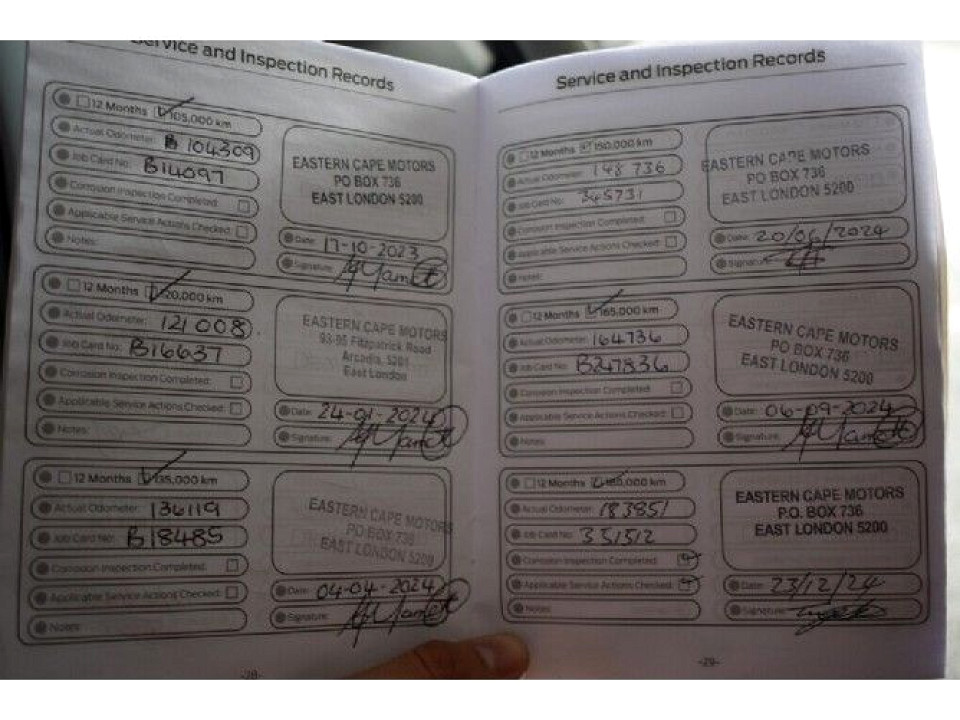 Service and Inspection Records
12 Months 105,000 km
Actual Odometer: B 104309
Job Card No: B14097
Corrosion Inspection Completed:
Applicable Service Actions Checked:
Notes:
EASTERN CAPE MOTORS
PO BOX 736
EAST LONDON 5200
Date: 17-10-2023
Signature:
12 Months 120,000 km
Actual Odometer: 121 008.
Job Card No: B16637
Corrosion Inspection Completed:
Applicable Service Actions Checked:
Notes:
EASTERN CAPE MOTORS
93-95 Fitzpatrick Road
Arcadia, 5201
East London
Date: 24-01-2024
Signature:
12 Months 135,000 km
Actual Odometer: 136119
Job Card No: B18485
Corrosion Inspection Completed:
Applicable Service Actions Checked:
Notes:
EASTERN CAPE MOTORS
PO BOX 736
EAST LONDON 5200
Date: 04-04-2024
Signature:
-28-
Service and Inspection Records
12 Months 150,000 km
Actual Odometer: 148 736
Job Card No: 345731
Corrosion Inspection Completed:
Applicable Service Actions Checked:
Notes:
EASTERN CAPE MOTORS
PO BOX 736
EAST LONDON 5200
Date: 20/06/2024
Signature:
12 Months 165,000 km
Actual Odometer: 164736
Job Card No: B247836
Corrosion Inspection Completed:
Applicable Service Actions Checked:
Notes:
EASTERN CAPE MOTORS
PO BOX 736
EAST LONDON 5200
Date: 06-09-2024
Signature:
12 Months 180,000 km
Actual Odometer: 183851
Job Card No: 351512
Corrosion Inspection Completed:
Applicable Service Actions Checked:
Notes:
EASTERN CAPE MOTORS
P.O. BOX 736
EAST LONDON 5200
Date: 23/12/24
Signature:
-29-